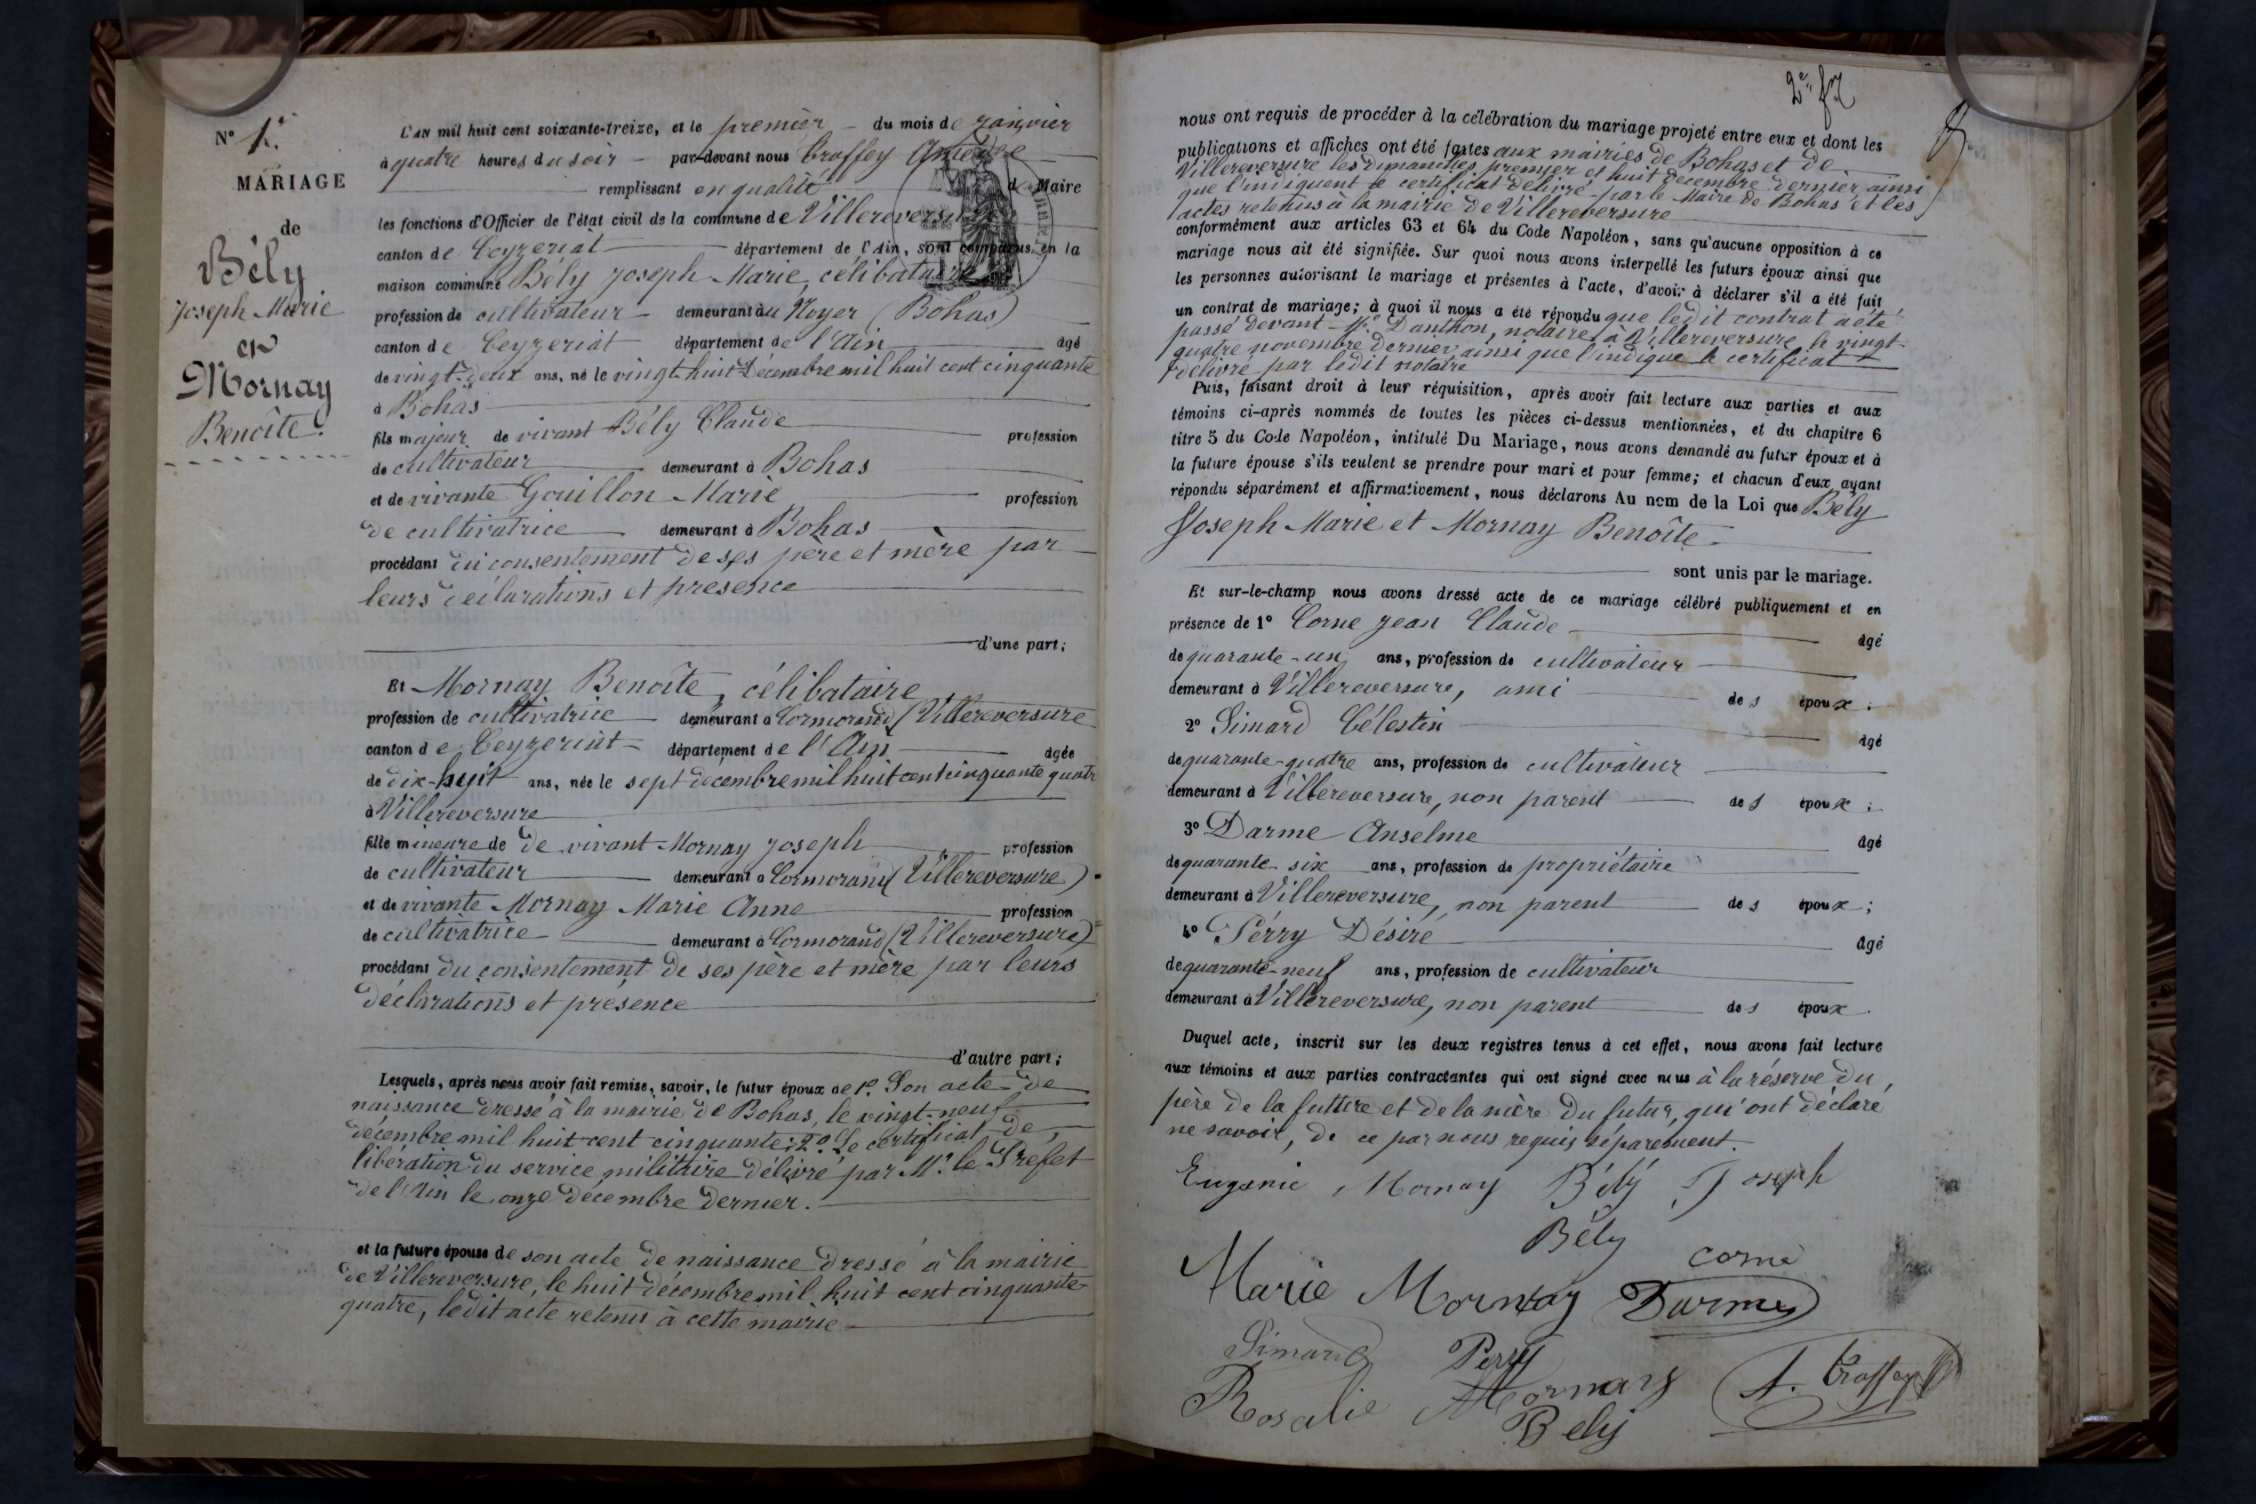 N° 1.
MARIAGE
de
Bély
Joseph Marie
et
Mornay
Benoîte.
L'AN mil huit cent soixante-treize, et le premier du mois de janvier
à quatre heures du soir par-devant nous Croffey Antoine
remplissant en qualité de Maire
les fonctions d'Officier de l'état civil de la commune de Villereversure
canton de Ceyzeriat département de l'Ain, sont comparus en la
maison commune Bély Joseph Marie, célibataire
profession de cultivateur demeurant au Noyer (Bohas)
canton de Ceyzeriat département de l'Ain âgé
de vingt-deux ans, né le vingt-huit Décembre mil huit cent cinquante
à Bohas
fils majeur de vivant Bély Claude profession
de cultivateur demeurant à Bohas
et de vivante Gouillon Marie profession
de cultivatrice demeurant à Bohas
procédant du consentement de ses père et mère par
leurs déclarations et présence
d'une part;
Et Mornay Benoîte, célibataire
profession de cultivatrice demeurant à Cormorand (Villereversure
canton de Ceyzeriat département de l'Ain âgée
de dix-huit ans, née le sept décembre mil huit cent cinquante quatre
à Villereversure
fille mineure de de vivant Mornay Joseph profession
de cultivateur demeurant à Cormorand (Villereversure)
et de vivante Mornay Marie Anne profession
de cultivatrice demeurant à Cormorand (Villereversure)
procédant du consentement de ses père et mère par leurs
déclarations et présence
d'autre part;
Lesquels, après nous avoir fait remise, savoir, le futur époux de 1° Son acte de
naissance dressé à la mairie de Bohas, le vingt-neuf
décembre mil huit cent cinquante; 2° Le certificat de
libération du service militaire délivré par Mr le Préfet
de l'Ain le onze décembre dernier.
et la future épouse de son acte de naissance dressé à la mairie
de Villereversure, le huit décembre mil huit cent cinquante-
quatre, ledit acte retenu à cette mairie
nous ont requis de procéder à la célébration du mariage projeté entre eux et dont les
publications et affiches ont été faites aux mairies de Bohas et de
Villereversure les dimanches premier et huit décembre dernier ainsi
que l'indiquent le certificat délivré par le Maire de Bohas et les
actes retenus à la mairie de Villereversure
conformément aux articles 63 et 64 du Code Napoléon, sans qu'aucune opposition à ce
mariage nous ait été signifiée. Sur quoi nous avons interpellé les futurs époux ainsi que
les personnes autorisant le mariage et présentes à l'acte, d'avoir à déclarer s'il a été fait
un contrat de mariage; à quoi il nous a été répondu que ledit contrat a été
passé devant Me Danthon, notaire à Villereversure le vingt-
quatre novembre dernier ainsi que l'indique le certificat
délivré par ledit notaire
Puis, faisant droit à leur réquisition, après avoir fait lecture aux parties et aux
témoins ci-après nommés de toutes les pièces ci-dessus mentionnées, et du chapitre 6
titre 5 du Code Napoléon, intitulé Du Mariage, nous avons demandé au futur époux et à
la future épouse s'ils veulent se prendre pour mari et pour femme; et chacun d'eux ayant
répondu séparément et affirmativement, nous déclarons Au nom de la Loi que Bély
Joseph Marie et Mornay Benoîte
sont unis par le mariage.
Et sur-le-champ nous avons dressé acte de ce mariage célébré publiquement et en
présence de 1° Corne Jean Claude âgé
de quarante-un ans, profession de cultivateur
demeurant à Villereversure, ami des époux;
2° Simard Célestin âgé
de quarante-quatre ans, profession de cultivateur
demeurant à Villereversure, non parent des époux;
3° Darme Anselme âgé
de quarante six ans, profession de propriétaire
demeurant à Villereversure, non parent des époux;
4° Pérry Désiré âgé
de quarante-neuf ans, profession de cultivateur
demeurant à Villereversure, non parent des époux.
Duquel acte, inscrit sur les deux registres tenus à cet effet, nous avons fait lecture
aux témoins et aux parties contractantes qui ont signé avec nous à la réserve du
père de la future et de la mère du futur, qui ont déclaré
ne savoir, de ce par nous requis séparément.
Eugenie Mornay Bély Joseph
Bély
Marie Mornay corne Darme
Simard Perry
Rosalie Mornay A. Croffey
Bely